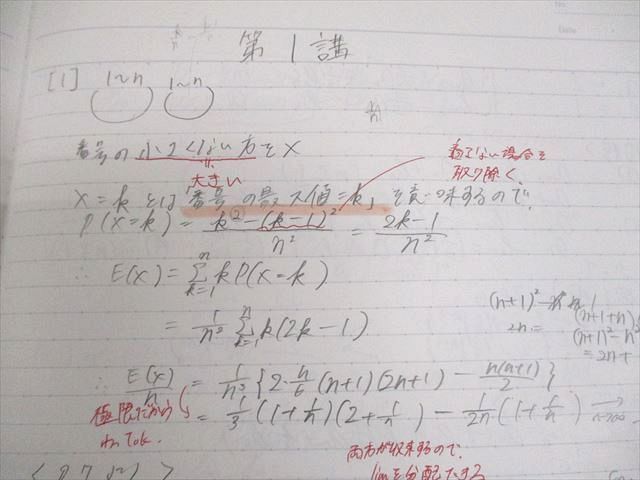 第1講
[1] 1~n 1~n
番号の小さくない方をX
大きい
X=kとは「番号の最大値=k」を意味するので、
P(X=k) = \frac{k^2-(k-1)^2}{n^2} = \frac{2k-1}{n^2}
取り除く
∴ E(X) = \sum_{k=1}^{n} k P(X=k)
= \frac{1}{n^2} \sum_{k=1}^{n} k(2k-1)
(n+1)^2
2n =
(n+1+n)
(n+1)^2-n^2
= 2n+
∴ \frac{E(X)}{n} = \frac{1}{n^3} {2·\frac{n}{6}(n+1)(2n+1) - \frac{n(n+1)}{2}}
= \frac{1}{3}(1+\frac{1}{n})(2+\frac{1}{n}) - \frac{1}{2n}(1+\frac{1}{n}) → n→∞
極限だから
わってOK.
両方が収束するので、
limを分配できる